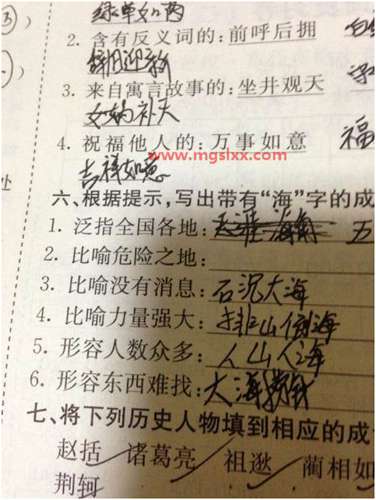 绿草如茵
2. 含有反义词的:前呼后拥
辞旧迎新
3. 来自寓言故事的:坐井观天
女娲补天
4. 祝福他人的:万事如意 福
www.mgslxx.com
吉祥如意
六、根据提示,写出带有“海”字的成
1. 泛指全国各地: 五
2. 比喻危险之地:
3. 比喻没有消息:石沉大海
4. 比喻力量强大:排山倒海
5. 形容人数众多:人山人海
6. 形容东西难找:大海捞针
七、将下列历史人物填到相应的成
赵括 诸葛亮 祖逖 蔺相如
荆轲